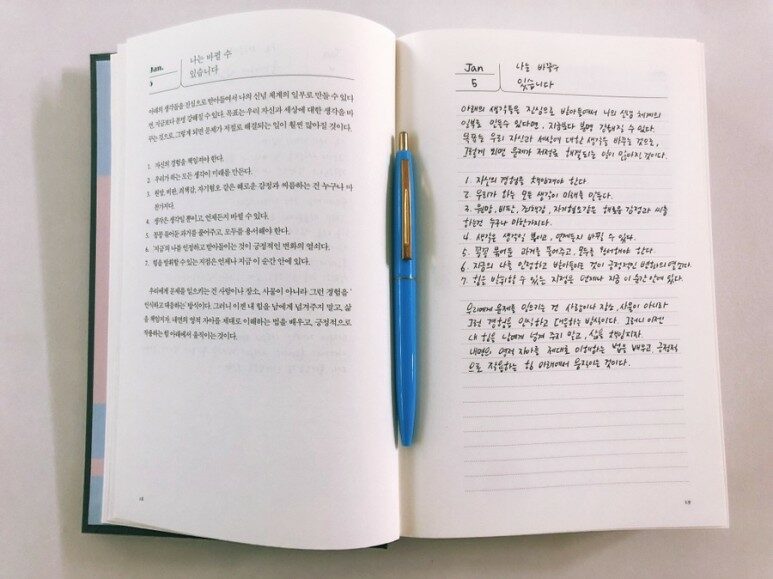 Jan.
5
나는 바뀔 수
있습니다
아래의 생각들을 진심으로 받아들여서 나의 신념 체계의 일부로 만들 수 있다
면, 지금보다 분명 강해질 수 있다. 목표는 우리 자신과 세상에 대한 생각을 바
꾸는 것으로, 그렇게 되면 문제가 저절로 해결되는 일이 훨씬 많아질 것이다.
1. 자신의 경험을 책임져야 한다.
2. 우리가 하는 모든 생각이 미래를 만든다.
3. 원망, 비판, 죄책감, 자기혐오 같은 해로운 감정과 씨름하는 건 누구나 마
찬가지다.
4. 생각은 생각일 뿐이고, 언제든지 바뀔 수 있다.
5. 꽁꽁 묶어둔 과거를 풀어주고, 모두를 용서해야 한다.
6. 지금의 나를 인정하고 받아들이는 것이 긍정적인 변화의 열쇠다.
7. 힘을 발휘할 수 있는 지점은 언제나 지금 이 순간 안에 있다.
우리에게 문제를 일으키는 건 사람이나 장소, 사물이 아니라 그런 경험을
인식하고 대응하는 방식이다. 그러니 이젠 내 힘을 남에게 넘겨주지 말고, 삶
을 책임지자. 내면의 영적 자아를 제대로 이해하는 법을 배우고, 긍정적으로
작용하는 힘 아래에서 움직이는 것이다.
18
Jan
5
나는 바뀔수
있습니다
아래의 생각들을 진심으로 받아들여서 나의 신념 체계의
일부로 만들수 있다면, 지금보다 분명 강해질 수 있다.
목표는 우리 자신과 세상에 대한 생각을 바꾸는 것으로,
그렇게 되면 문제가 저절로 해결되는 일이 많아진 것이다.
1. 자신의 경험을 책임져야 한다.
2. 우리가 하는 모든 생각이 미래를 만든다.
3. 원망, 비판, 죄책감, 자기혐오같은 해로운 감정과 씨름
하는건 누구나 마찬가지다.
4. 생각은 생각일 뿐이고, 언제든지 바뀔 수 있다.
5. 꽁꽁 묶어둔 과거를 풀어주고, 모두를 용서해야 한다.
6. 지금의 나를 인정하고 받아들이는 것이 긍정적인 변화의 열쇠다.
7. 힘을 발휘할 수 있는 지점은 언제나 지금 이 순간 안에 있다.
우리에게 문제를 일으키는 건 사람이나 장소, 사물이 아니라
그런 경험을 인식하고 대응하는 방식이다. 그러니 이젠
내 힘을 남에게 넘겨 주지 말고, 삶을 책임지자.
내면의 영적 자아를 제대로 이해하는 법을 배우고, 긍정적
으로 작용하는 힘 아래에서 움직이는 것이다.
19